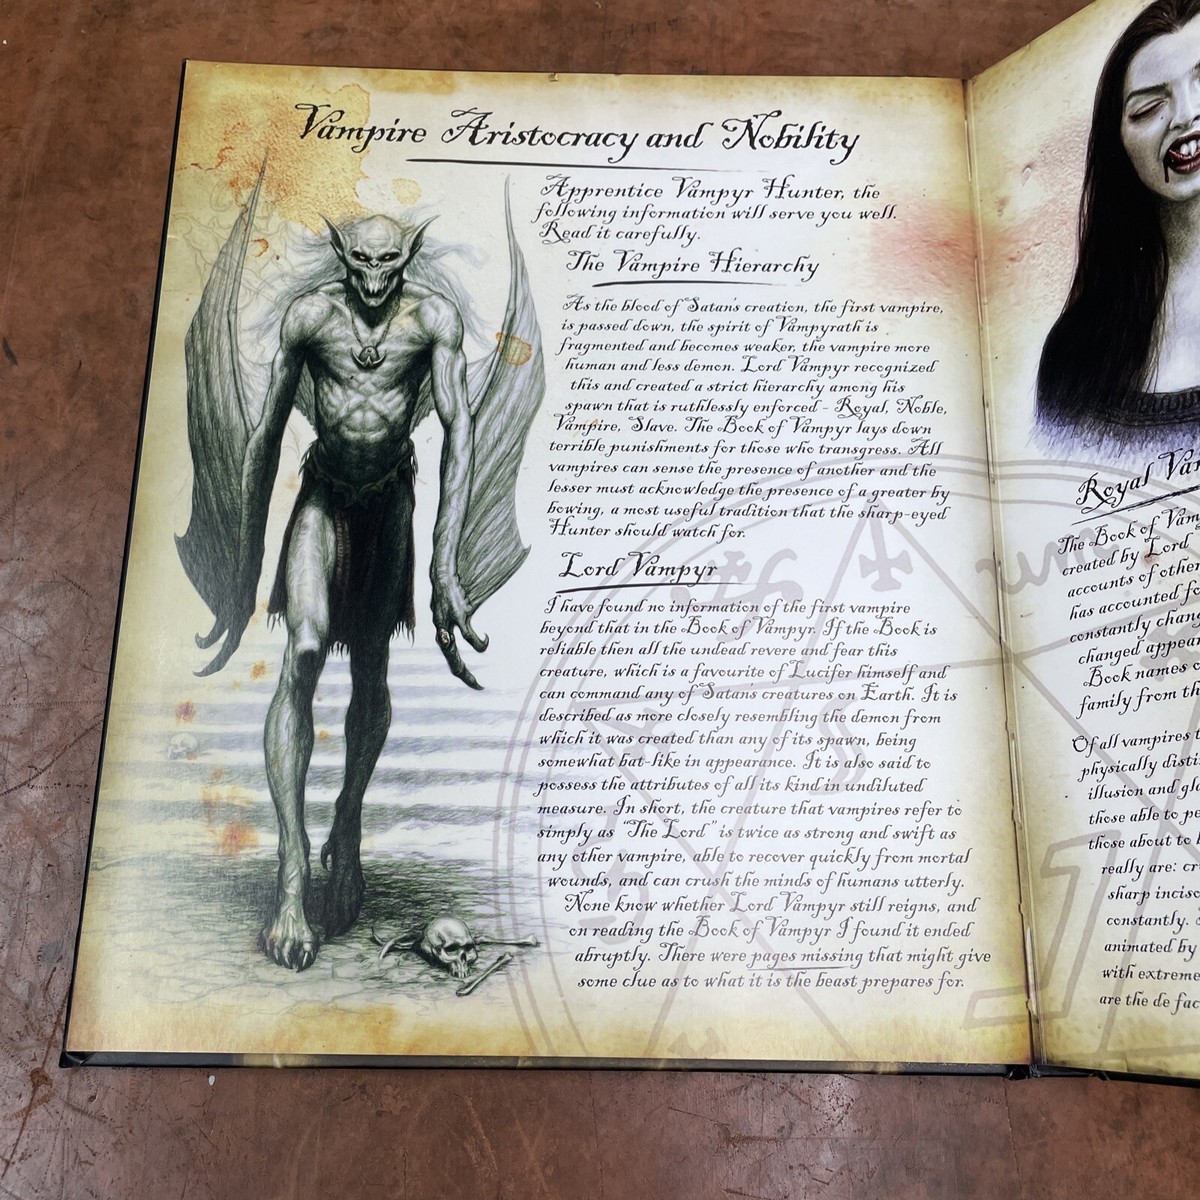 Vampire Aristocracy and Nobility
Apprentice Vampyr Hunter, the
following information will serve you well.
Read it carefully.
The Vampire Hierarchy
As the blood of Satan's creation, the first vampire,
is passed down, the spirit of Vampyrath is
fragmented and becomes weaker, the vampire more
human and less demon. Lord Vampyr recognized
this and created a strict hierarchy among his
spawn that is ruthlessly enforced - Royal, Noble,
Vampire, Slave. The Book of Vampyr lays down
terrible punishments for those who transgress. All
vampires can sense the presence of another and the
lesser must acknowledge the presence of a greater by
bowing, a most useful tradition that the sharp-eyed
Hunter should watch for.
Lord Vampyr
I have found no information of the first vampire
beyond that in the Book of Vampyr. If the Book is
reliable then all the undead revere and fear this
creature, which is a favourite of Lucifer himself and
can command any of Satan's creatures on Earth. It is
described as more closely resembling the demon from
which it was created than any of its spawn, being
somewhat bat-like in appearance. It is also said to
possess the attributes of all its kind in undiluted
measure. In short, the creature that vampires refer to
simply as "The Lord" is twice as strong and swift as
any other vampire, able to recover quickly from mortal
wounds, and can crush the minds of humans utterly.
None know whether Lord Vampyr still reigns, and
on reading the Book of Vampyr I found it ended
abruptly. There were pages missing that might give
some clue as to what it is the beast prepares for.
Royal
The Book of
created by Lord
accounts of other
has accounted
constantly
changed
Book names
family from
Of all vampires
physically
illusion and
those able to
those about to
really are:
sharp
constantly.
animated by
with extreme
are the de